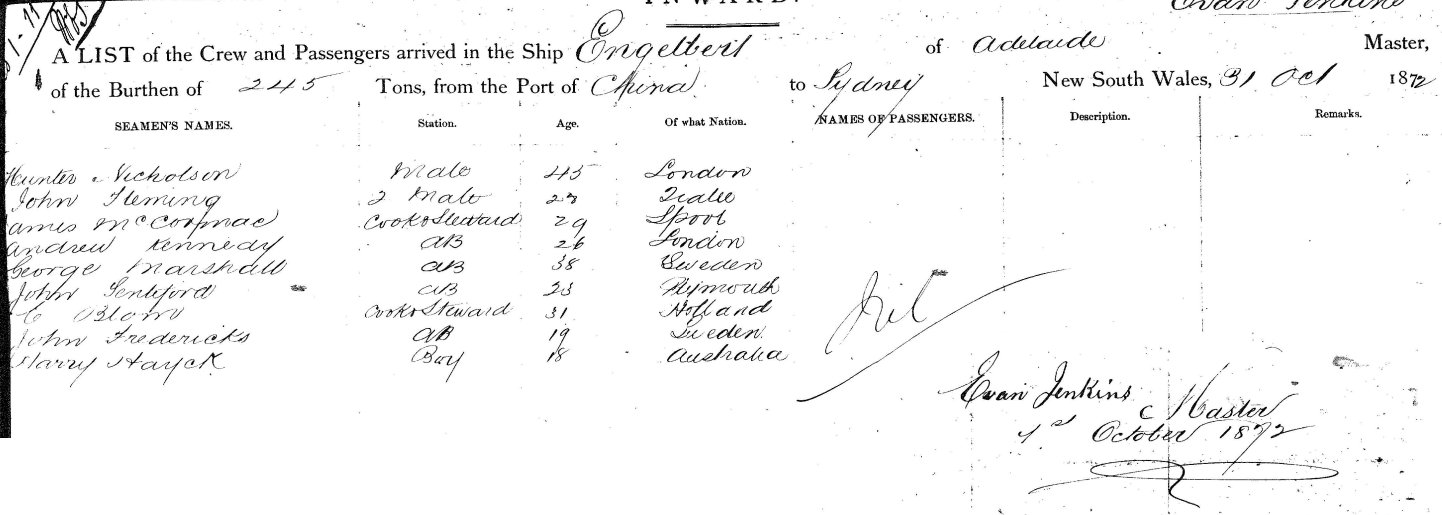 INWARD.
Evan Jenkins
A LIST of the Crew and Passengers arrived in the Ship Engelbert of Adelaide Master,
of the Burthen of 245 Tons, from the Port of China to Sydney New South Wales, 31 Oct 1872
SEAMEN'S NAMES. Station. Age. Of what Nation. NAMES OF PASSENGERS. Description. Remarks.
Hunter Nicholson Mate 45 London
John Fleming 2 Mate 23 Tralee
James McCormac Cook & Steward 29 Lpool
Andrew Kennedy AB 26 London
George Marshall AB 38 Sweden
John AB 23 Plymouth
C Blom Cook & Steward 31 Holland
John Fredericks AB 19 Sweden
Harry Hayck Boy 18 Australia
Nil
Evan Jenkins
Master
October 1872